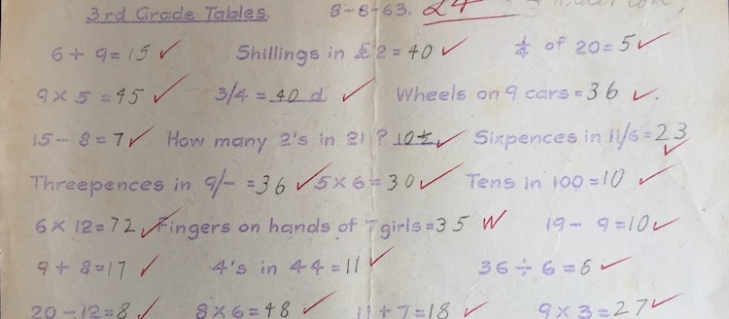 3rd Grade Tables. 8-8-63. 24
6 + 9 = 15 Shillings in £2 = 40 ¼ of 20 = 5
9 × 5 = 45 3/4 = 40 d. Wheels on 9 cars = 36
15 - 8 = 7 How many 2's in 21? 10½ Sixpences in 11/6 = 23
Threepences in 9/- = 36 5 × 6 = 30 Tens in 100 = 10
6 × 12 = 72 Fingers on hands of 7 girls = 35 19 - 9 = 10
9 + 8 = 17 4's in 44 = 11 36 ÷ 6 = 6
20 - 12 = 8 8 × 6 = 48 11 + 7 = 18 9 × 3 = 27